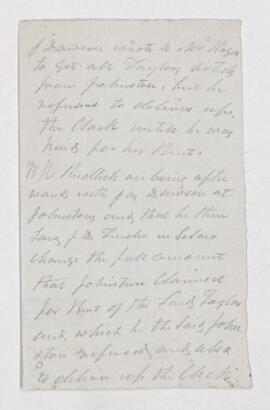 J Dawson wrote to Mr
to Get all Taylors Articles
from Johnston, but he
refused to deliver up
the Clock untill he was
paid for his Rent.
W. R. on being after
wards with Jas Dawson at
Johnstons and that he then
saw J D tender in Silver
change the full amount
that Johnston Claimed
for Rent of the said Taylor
and which he the said John
ston refused and also
to deliver up the Clock.